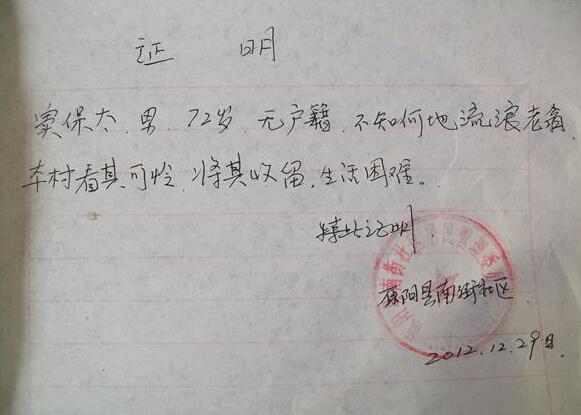 证 明
窦保太、男、72岁、无户籍、不知何地流浪老翁
本村看其可怜、将其收留,生活困难。
特此证明
原阳县南街社区
2012.12.29日